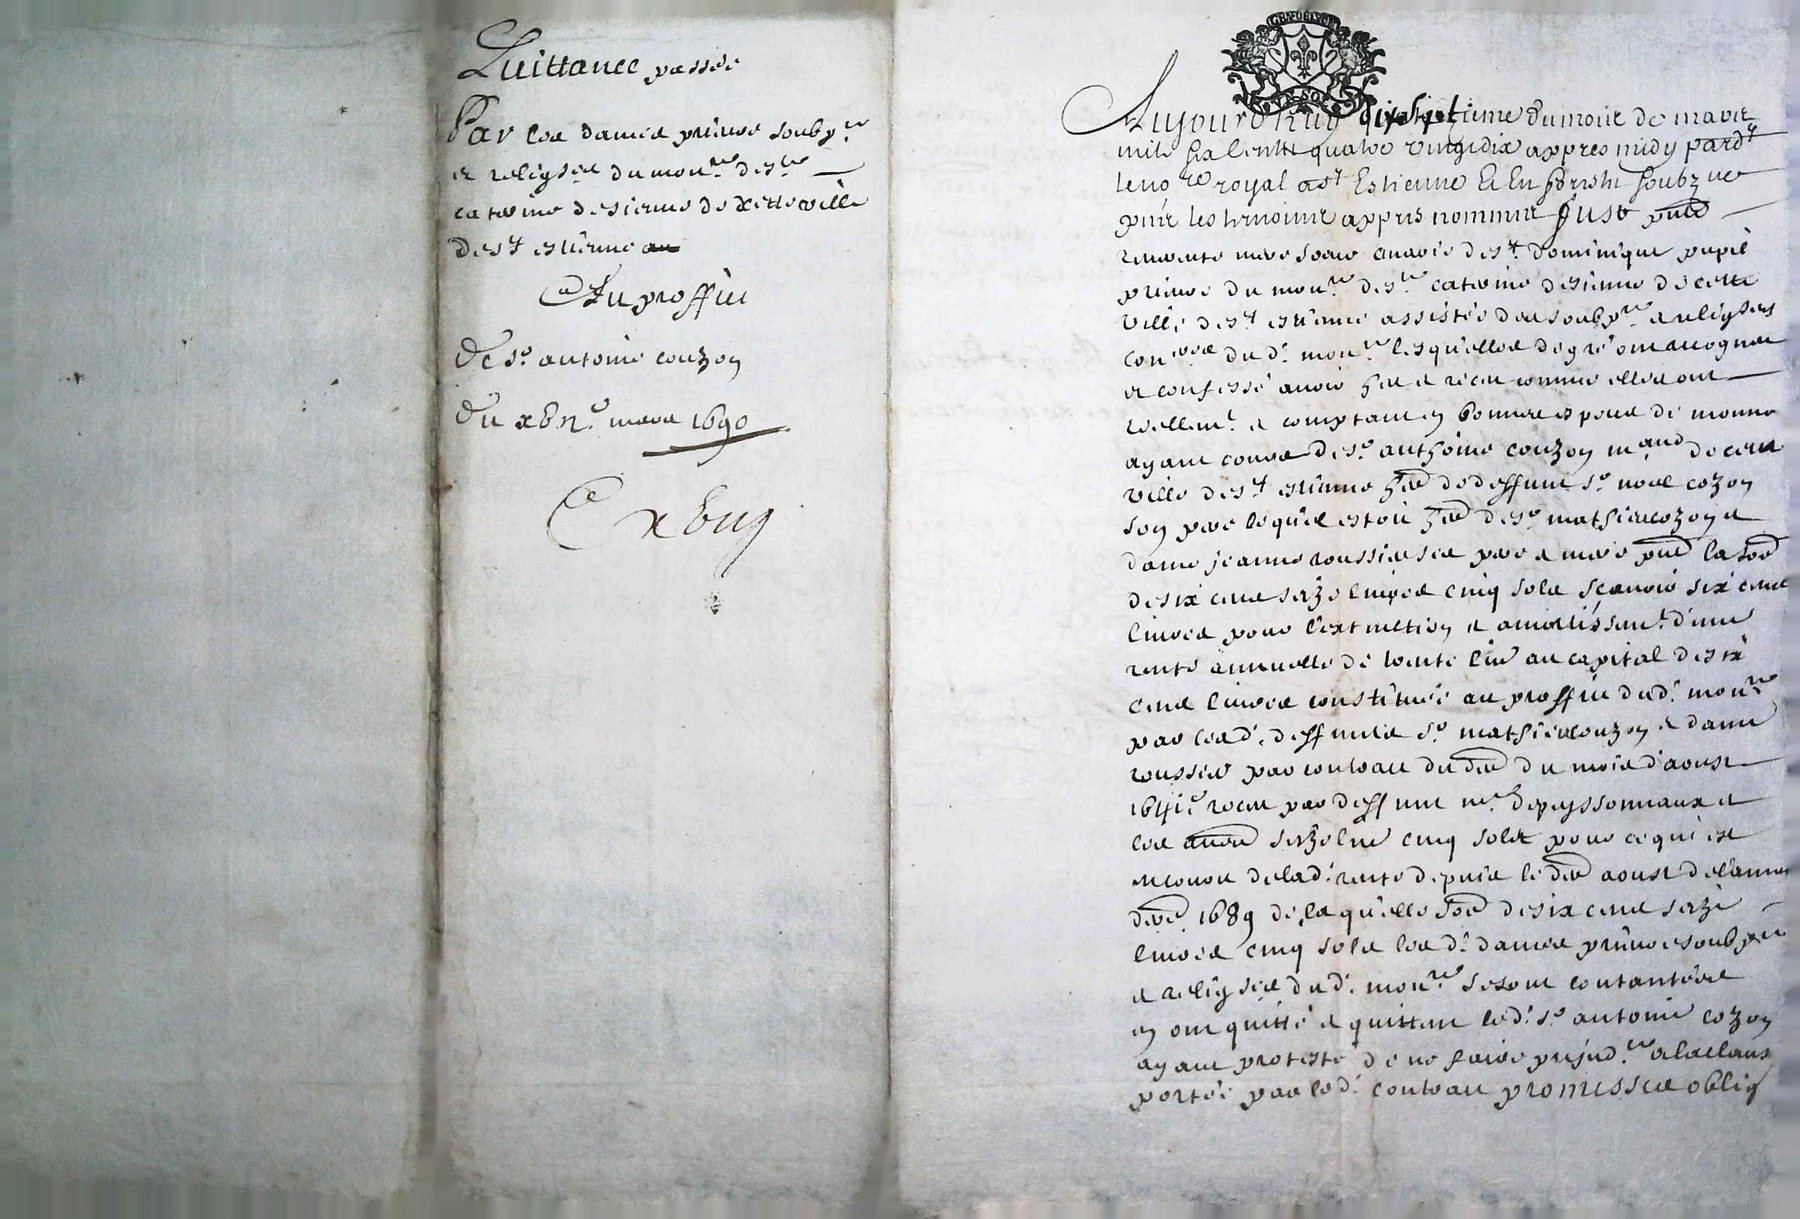 Quittance passée
Par les dames prieure soubpre
et religses du monre de ste
caterine desienne de cette ville
de st estienne au
Au proffit
De sr antoine couzon
Du xbne mars 1690
GENERALITE
Aujourdhuy dixseptieme du mois de mars
mil six centz quatre vingt dix appres midy pardt
le nore royal a st Estienne en forestz soubzne
pnts les tesmoins appres nommes fust pnte
reverente mere soeur marie de st dominique pupil
prieure du monre de ste caterine desienne de cette
ville de st estienne assistée des soubpre et religses
du d. monre lesquelles de gré ont recogneu
et confessé avoir heu et receu comme elles ont
reellemt et comptant en bonnes espece de monnoe
ayant cours de sr anthoine couzon mand de cette
ville de st estienne her de deffunt sr noel cozon
son pere lequel estoit her de sr mathieu cozon et
dame jeanne roussier ses pere et mere pnt la some
de six cent seize livres cinq sols scavoir six cent
livres pour l'extinction et amortissemt d'une
rente annuelle de trente livr au capital de six
cent livres constituée au proffit dud. monre
par les d. deffuntz sr mathieu couzon et dame
roussier par contract du du mois d'aoust
receu par deffunt me depeyssonneaux et
les autres seize livr cinq solz pour ce qui est
de la d. rente depuis le aoust de l'année
derre 1689 de laquelle some de six cent seize
livres cinq sols les d. dames prieure soubpre
et religses du d. monre se sont contantées
en ont quitté et quittent led. sr antoine cozon
ayant protesté de ne faire prejud.ce a la claus
portée par led. contract promis se oblig